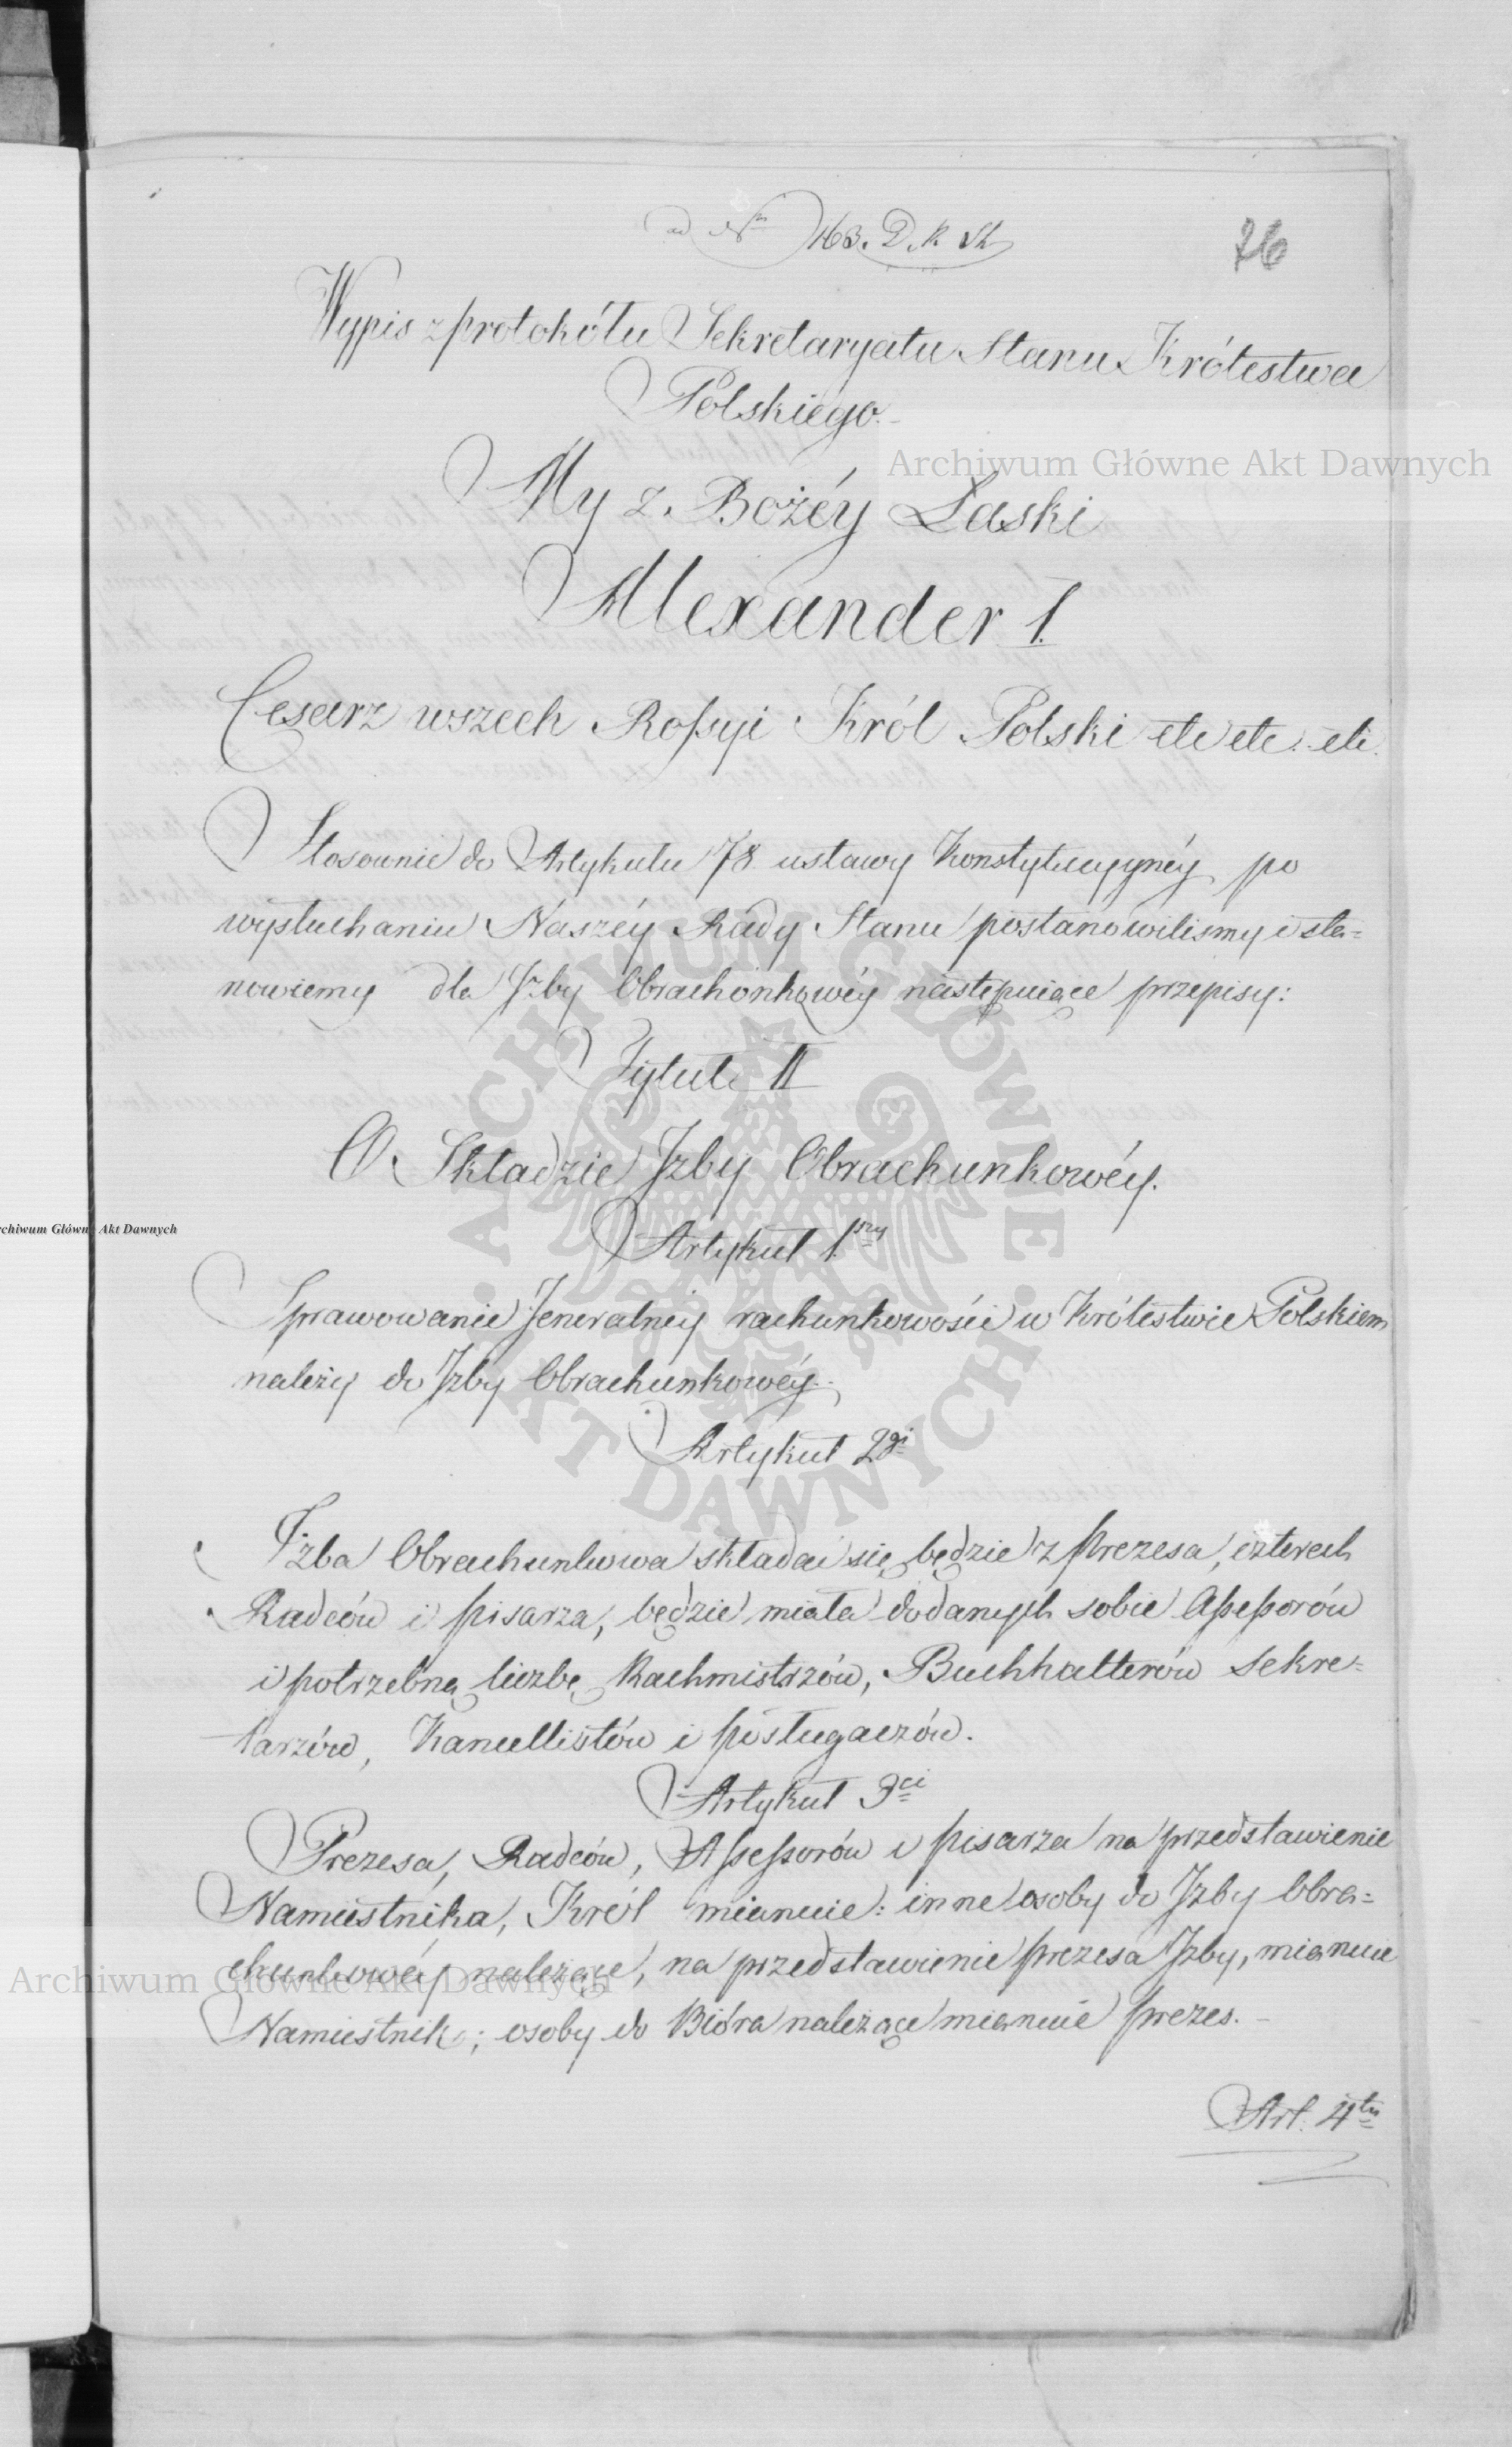 ad Nm 163. D. R. St.
76
Wypis z protokółu Sekretaryatu Stanu Królestwa
Polskiego.
My z Bożéy Łaski
Alexander I.
Cesarz wszech Rossyi Król Polski etc etc. etc.
Stosownie do Artykułu 78 ustawy Konstytucyynéy po
wysłuchaniu Naszéy Rady Stanu postanowilismy i sta=
nowiemy dla Jzby Obrachonkowéy następuiące przepisy:
Tytuł II
O Składzie Jzby Obrachunkowéy.
Artykuł 1.szy
Sprawowanie Jeneralnéy rachunkowości w Królestwie Polskiem
należy do Jzby Obrachunkowéy.
Artykuł 2gi
Jzba Obrachunkowa składać się będzie z Prezesa, czterech
Radców i pisarza, będzie miała dodanych sobie Assessorów
i potrzebną liczbę Rachmistrzów, Buchhalterów Sekre=
tarzów, Kancellistów i posługaczów.
Artykuł 3ci
Prezesa, Radców, Assessorów i pisarza na przedstawienie
Namiestnika, Król mianuie: inne osoby do Jzby Obra=
chunkowéy należące, na przedstawienie prezesa Jzby, mianuie
Namiestnik; osoby do Bióra należące mianuie prezes.
Art. 4ty
Archiwum Główne Akt Dawnych
Archiwum Główne Akt Dawnych
Archiwum Główne Akt Dawnych
ARCHIWUM GŁÓWNE • AKT DAWNYCH •